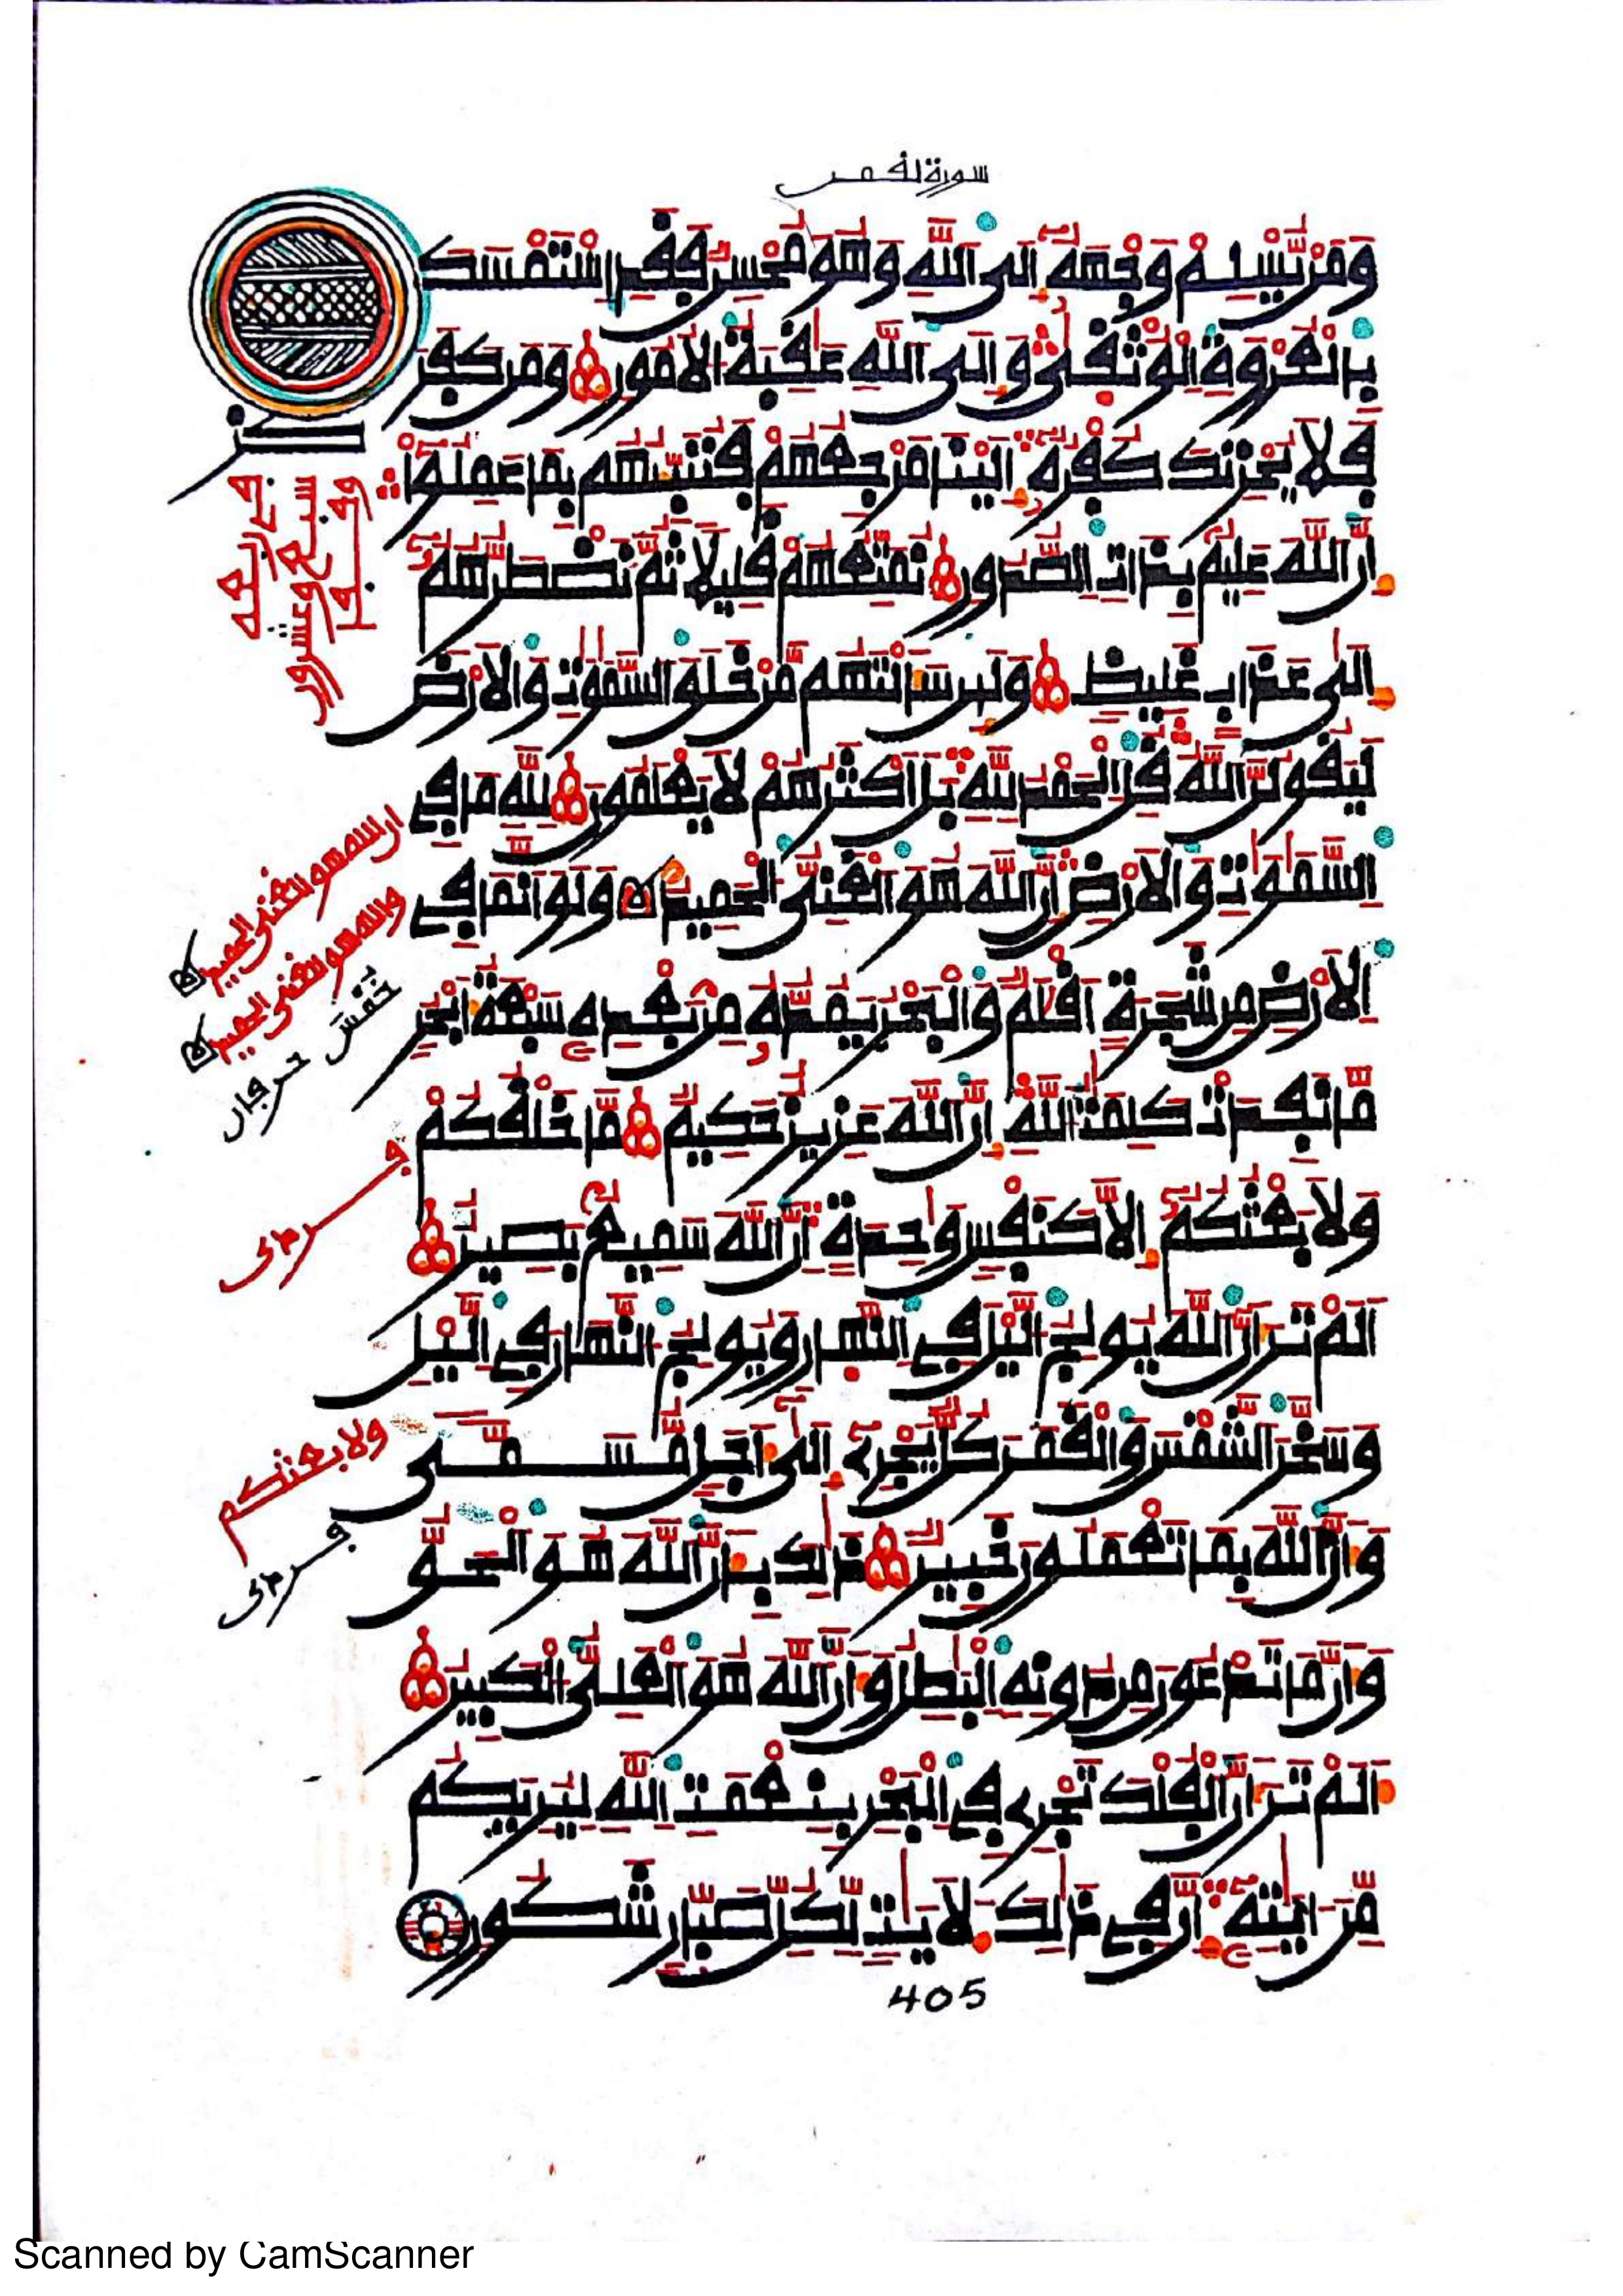 سورة لقمن
وَمَنْ يُّسْلِمْ وَجْهَهُۥٓ إِلَى اَللَّهِ وَهُوَ مُحْسِنٌ فَقَدِ اِسْتَمْسَكَ
بِالْعُرْوَةِ اِلْوُثْقَىٰ وَإِلَى اَللَّهِ عَٰقِبَةُ اُلْأُمُورِ وَمَن كَفَرَ
فَلَا يُحْزِنكَ كُفْرُهُۥٓ إِلَيْنَا مَرْجِعُهُمْ فَنُنَبِّئُهُم بِمَا عَمِلُوٓا۟
إِنَّ اَللَّهَ عَلِيمٌۢ بِذَاتِ اِلصُّدُورِ نُمَتِّعُهُمْ قَلِيلًا ثُمَّ نَضْطَرُّهُمُۥٓ
إِلَىٰ عَذَابٍ غَلِيظٍ وَلَئِن سَأَلْتَهُم مَّنْ خَلَقَ اَلسَّمَٰوَٰتِ وَالْأَرْضَ
لَيَقُولُنَّ اَللَّهُ قُلِ اِلْحَمْدُ لِلَّهِ بَلْ أَكْثَرُهُمْ لَا يَعْلَمُونَ لِلَّهِ مَا فِى
اِلسَّمَٰوَٰتِ وَالْأَرْضِ إِنَّ اَللَّهَ هُوَ اَلْغَنِىُّ اُلْحَمِيدُ وَلَوَ اَنَّمَا فِى
اِلْأَرْضِ مِن شَجَرَةٍ أَقْلَٰمٌ وَالْبَحْرُ يَمُدُّهُۥ مِنۢ بَعْدِهِۦ سَبْعَةُ أَبْحُرٍ
مَّا نَفِدَتْ كَلِمَٰتُ اُللَّهِ إِنَّ اَللَّهَ عَزِيزٌ حَكِيمٌ مَّا خَلْقُكُمْ
وَلَا بَعْثُكُمُۥٓ إِلَّا كَنَفْسٍ وَٰحِدَةٍ إِنَّ اَللَّهَ سَمِيعٌۢ بَصِيرٌ
أَلَمْ تَرَ أَنَّ اَللَّهَ يُولِجُ اُلَّيْلَ فِى اِلنَّهَارِ وَيُولِجُ اُلنَّهَارَ فِى اِلَّيْلِ
وَسَخَّرَ اَلشَّمْسَ وَالْقَمَرَ كُلٌّ يَجْرِىٓ إِلَىٰٓ أَجَلٍ مُّسَمًّى
وَأَنَّ اَللَّهَ بِمَا تَعْمَلُونَ خَبِيرٌ ذَٰلِكَ بِأَنَّ اَللَّهَ هُوَ اَلْحَقُّ
وَأَنَّ مَا تَدْعُونَ مِن دُونِهِ اِلْبَٰطِلُ وَأَنَّ اَللَّهَ هُوَ اَلْعَلِىُّ اُلْكَبِيرُ
أَلَمْ تَرَ أَنَّ اَلْفُلْكَ تَجْرِى فِى اِلْبَحْرِ بِنِعْمَتِ اِللَّهِ لِيُرِيَكُم
مِّنَ اٰيَٰتِهِۦٓ إِنَّ فِى ذَٰلِكَ لَأٓيَٰتٍ لِّكُلِّ صَبَّارٍ شَكُورٍ
405
ان الله هو الغني الحميد
والله هو الغني الحميد
ولا بعثكم
Scanned by CamScanner